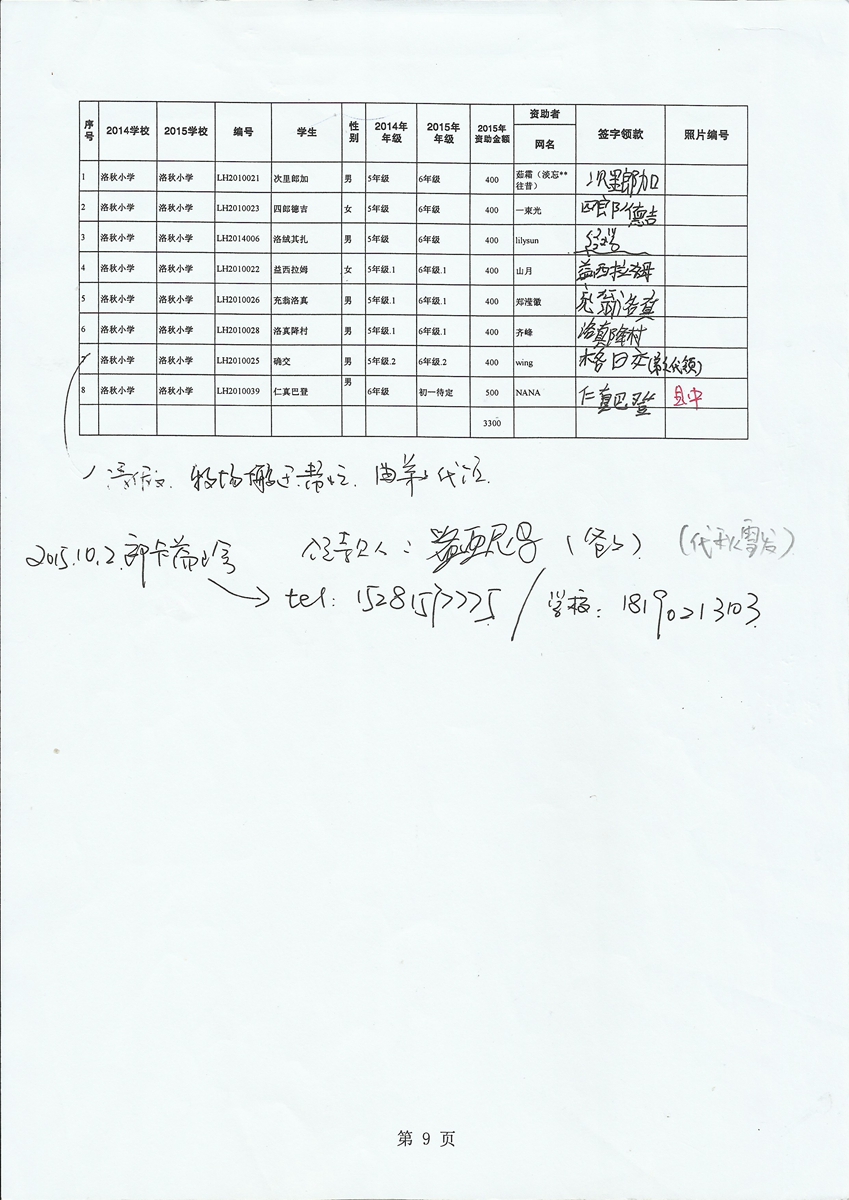 序号 2014学校 2015学校 编号 学生 性别 2014年年级 2015年年级 2015年资助金额 资助者 网名 签字领款 照片编号
1 洛秋小学 洛秋小学 LH2010021 次里郎加 男 5年级 6年级 400 茹霜（淡忘**往昔） 次里郎加
2 洛秋小学 洛秋小学 LH2010023 四郎德吉 女 5年级 6年级 400 一束光 四郎德吉
3 洛秋小学 洛秋小学 LH2014006 洛绒其扎 男 5年级 6年级 400 lilysun
4 洛秋小学 洛秋小学 LH2010022 益西拉姆 女 5年级.1 6年级.1 400 山月 益西拉姆
5 洛秋小学 洛秋小学 LH2010026 充翁洛真 男 5年级.1 6年级.1 400 郑滢徽 充翁洛真
6 洛秋小学 洛秋小学 LH2010028 洛真降村 男 5年级.1 6年级.1 400 齐峰 洛真降村
7 洛秋小学 洛秋小学 LH2010025 确交 男 5年级.2 6年级.2 400 wing
8 洛秋小学 洛秋小学 LH2010039 仁真巴登 男 6年级 初一待定 500 NANA 仁真巴登 县中
3300
请假 牧场搬迁帮忙
2015.10.2
tel: 学校: 18190213103
第 9 页